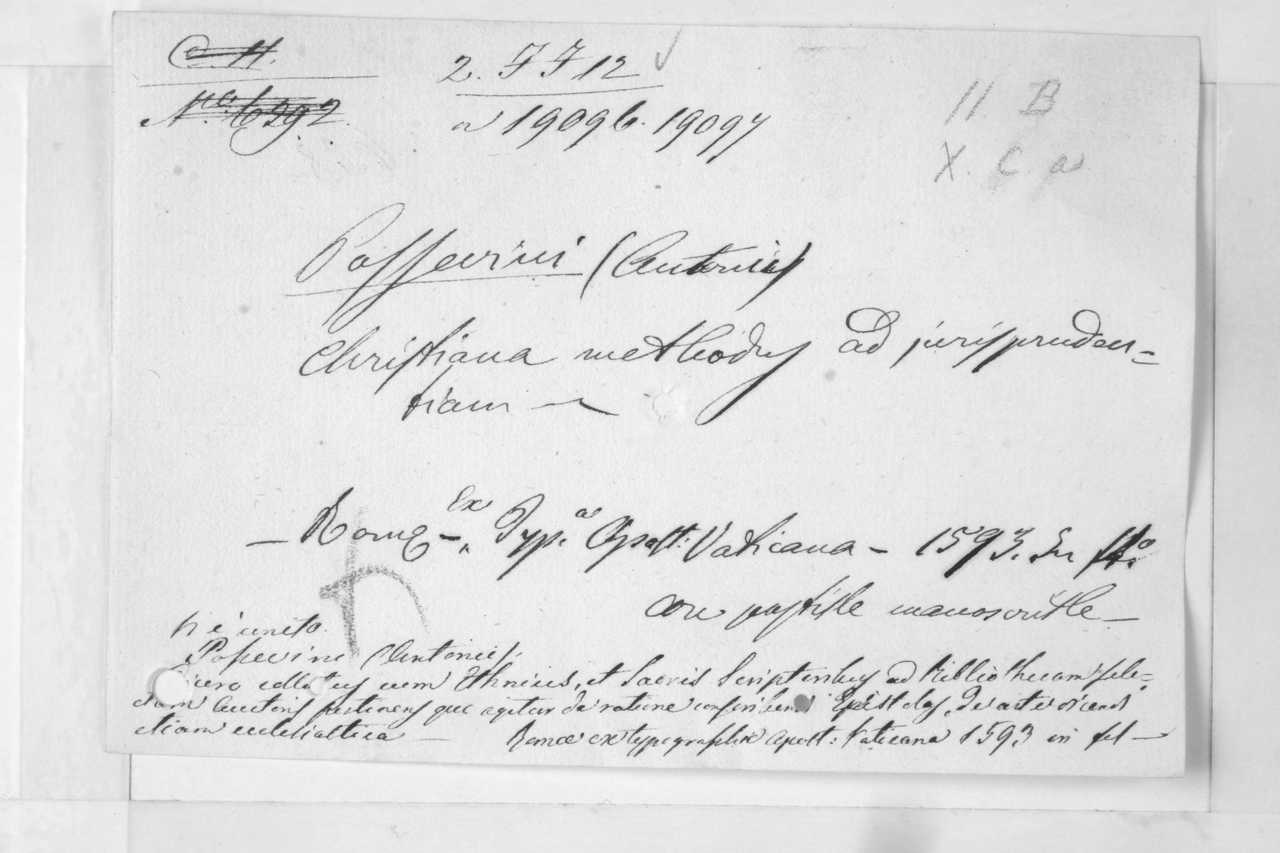 C. H.
2. F F 12
N.º 6292.
a 19096. 19097
11. B
X. C. a
Possevini (Antonii)
Christiana methodus ad jurispruden=
tiam —
— Romę — Ex Typ.ª Apost: Vaticana — 1593. In
con postille manoscritte —
vi è unito
Possevini Antonii
Cicero collatus cum Ethnicis, et Sacris Scriptoribus ad Bibliothecam sele=
ctam pertinens quo agitur de ratione conscribendi Epistolas, de arte dicendi
etiam ecclesiastica — Romae ex typographia Apost: Vaticana 1593 in fol —